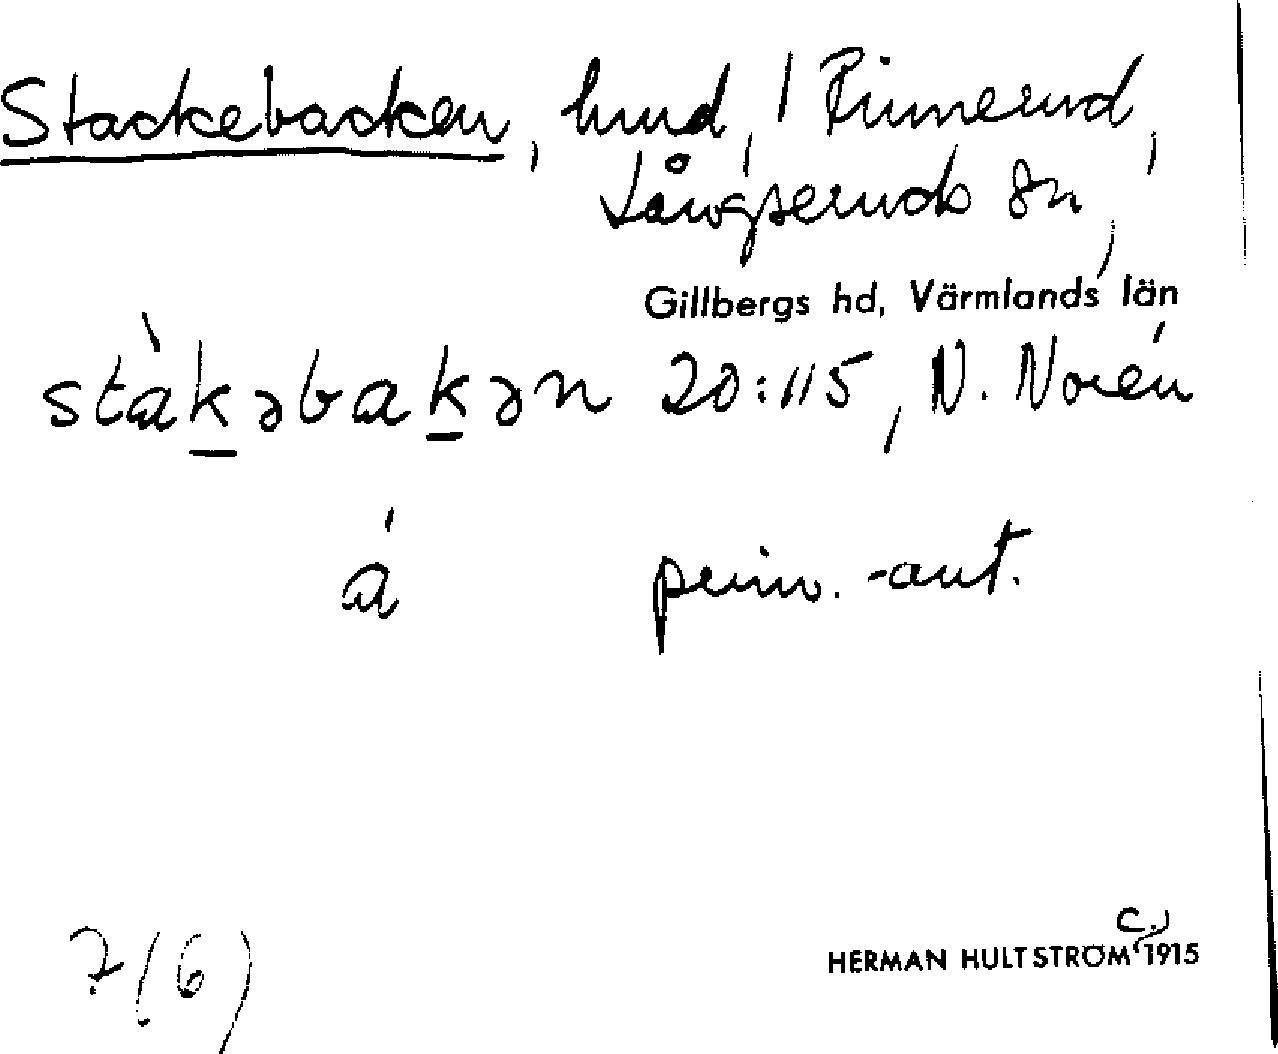 Stackebacken, hmd, / Rinnerud,
Långseruds sn,
Gillbergs hd, Värmlands län
stàkəbakən 20:115, N. Norén
á prim. -ant.
7(6)
C.
HERMAN HULTSTRÖM 1915